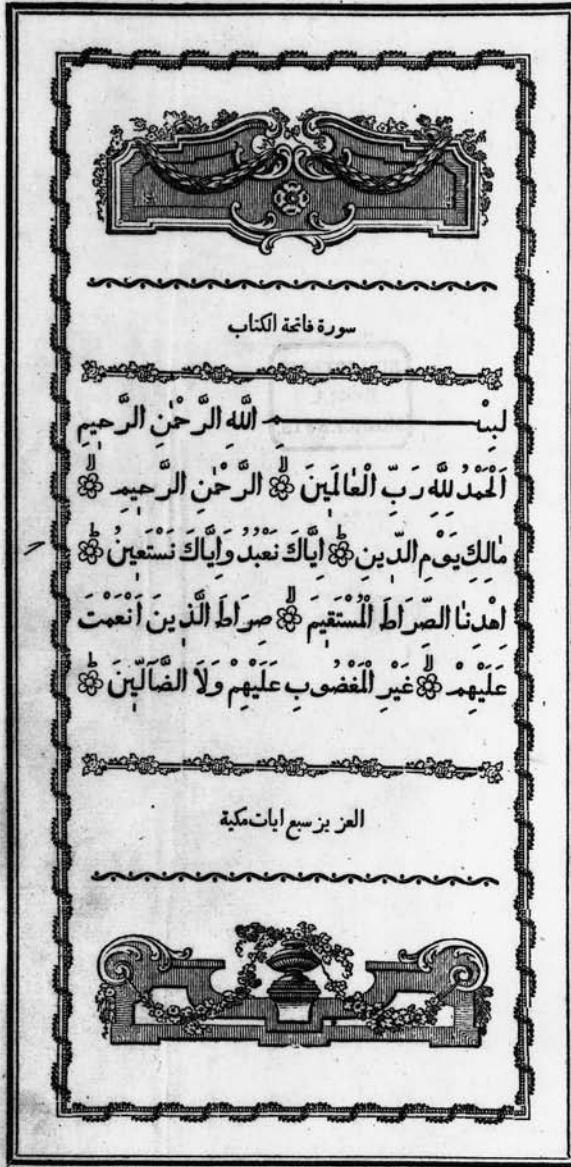 سورة فاتحة الكتاب
لبِسْــــــمِ اللَّهِ الرَّحْمٰنِ الرَّحِيمِ
اَلْحَمْدُ لِلَّهِ رَبِّ الْعٰالَمِينَ ۞ الرَّحْمٰنِ الرَّحِيمِ ۞
مٰالِكِ يَوْمِ الدِّينِ ۞ اِيَّاكَ نَعْبُدُ وَاِيَّاكَ نَسْتَعِينُ ۞
اِهْدِنٰا الصِّرَاطَ الْمُسْتَقِيمَ ۞ صِرَاطَ الَّذِينَ اَنْعَمْتَ
عَلَيْهِمْ ۞ غَيْرِ الْمَغْضُوبِ عَلَيْهِمْ وَلَا الضَّآلِّينَ ۞
العزيز سبع ايات مكية